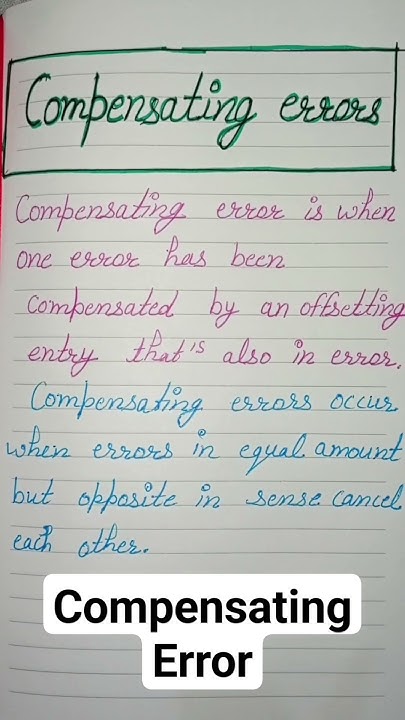 Compensating errors
Compensating error is when
one error has been
compensated by an offsetting
entry that's also in error.
Compensating errors occur
when errors in equal amount
but opposite in sense cancel
each other.
Compensating
Error